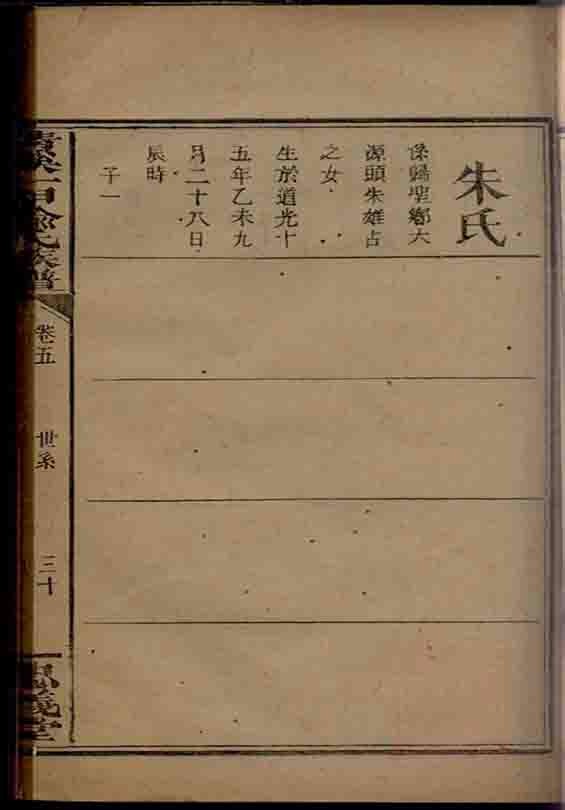 朱氏
係歸聖鄉大
源頭朱雄占
之女
生於道光十
五年乙未九
月二十八日
辰時
子一
俞氏族譜
卷五
世系
三十
義堂